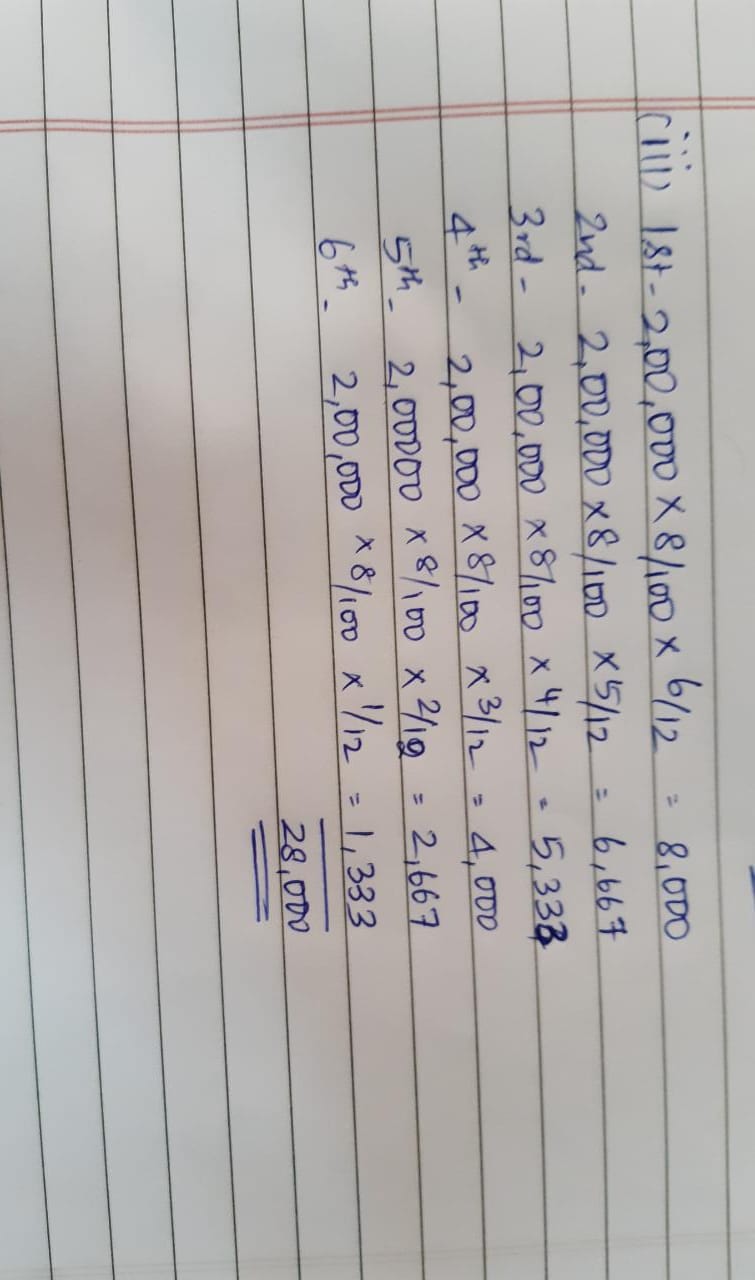 (iii) 1st - 2,00,000 x 8/100 x 6/12 = 8,000
2nd - 2,00,000 x 8/100 x 5/12 = 6,667
3rd - 2,00,000 x 8/100 x 4/12 = 5,333
4th - 2,00,000 x 8/100 x 3/12 = 4,000
5th - 2,00000 x 8/100 x 2/12 = 2,667
6th - 2,00,000 x 8/100 x 1/12 = 1,333
28,000